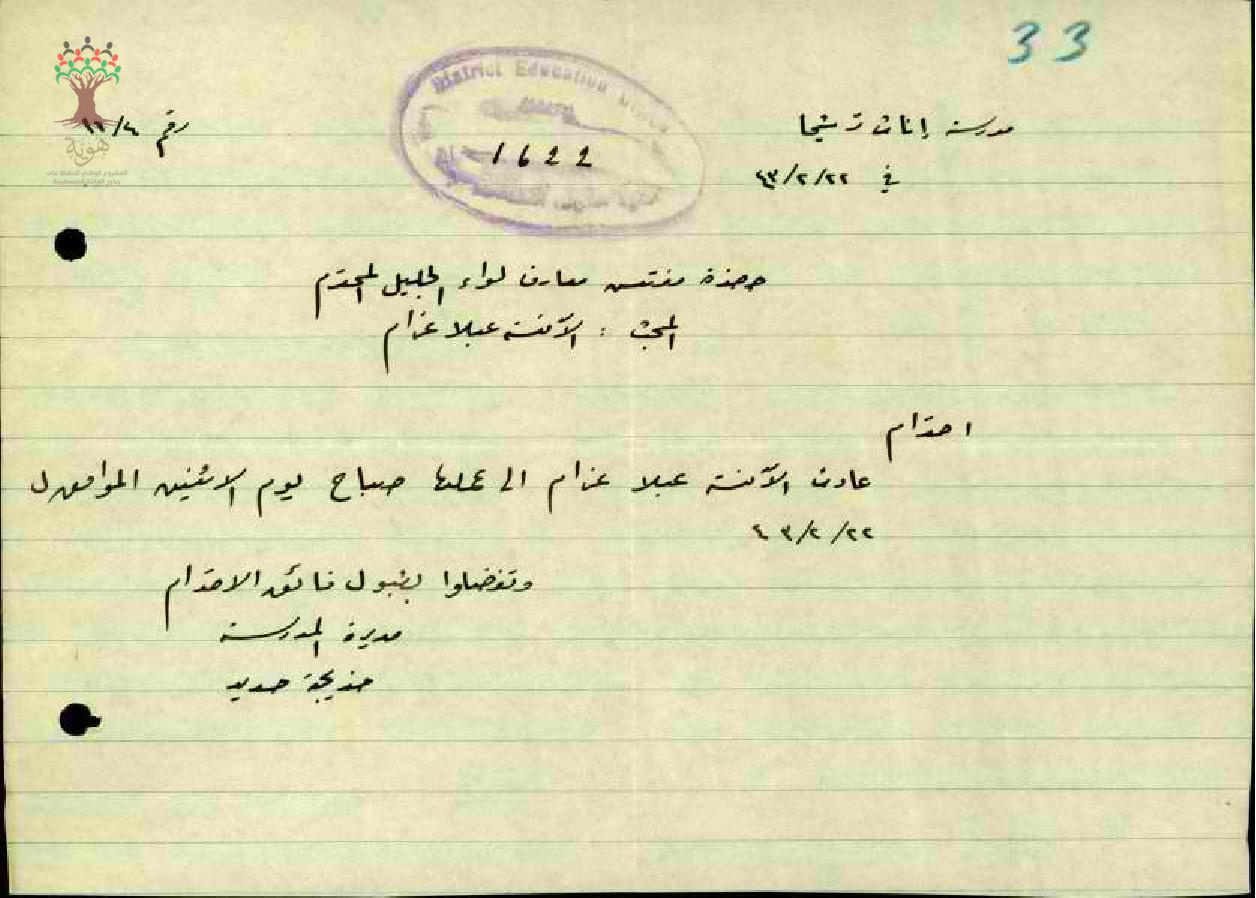 33
مدرسة إناث ترشيحا
في ٤٣/٢/٢٢
رقم
هوية
District Education
1622
حضرة مفتش معارف لواء الجليل المحترم
المبحث : الآنسة عبلا عزام
احترام
عادت الآنسة عبلا عزام الى عملها صباح يوم الاثنين الموافق ل
٤٣/٢/٢٢
وتفضلوا بقبول فائق الاحترام
مديرة المدرسة
خديجة حديد